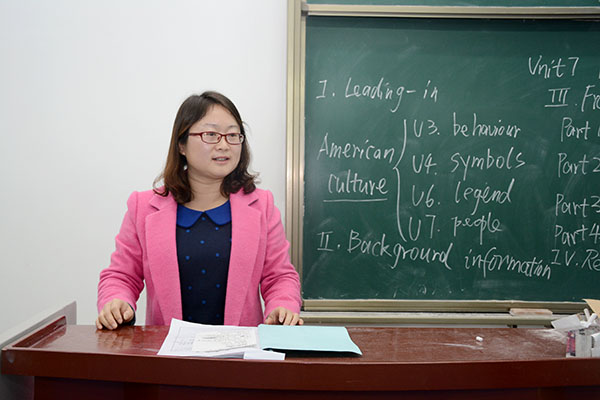 Unit 7
I. Leading-in
American culture
U3. behaviour
U4. symbols
U6. legend
U7. people
II. Background information
III.
Part 1
Part 2
Part 3
Part 4.
IV.